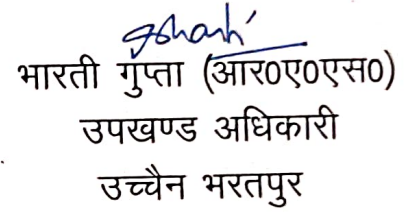 भारती गुप्ता (आर0ए0एस0)
उपखण्ड अधिकारी
उच्चैन भरतपुर